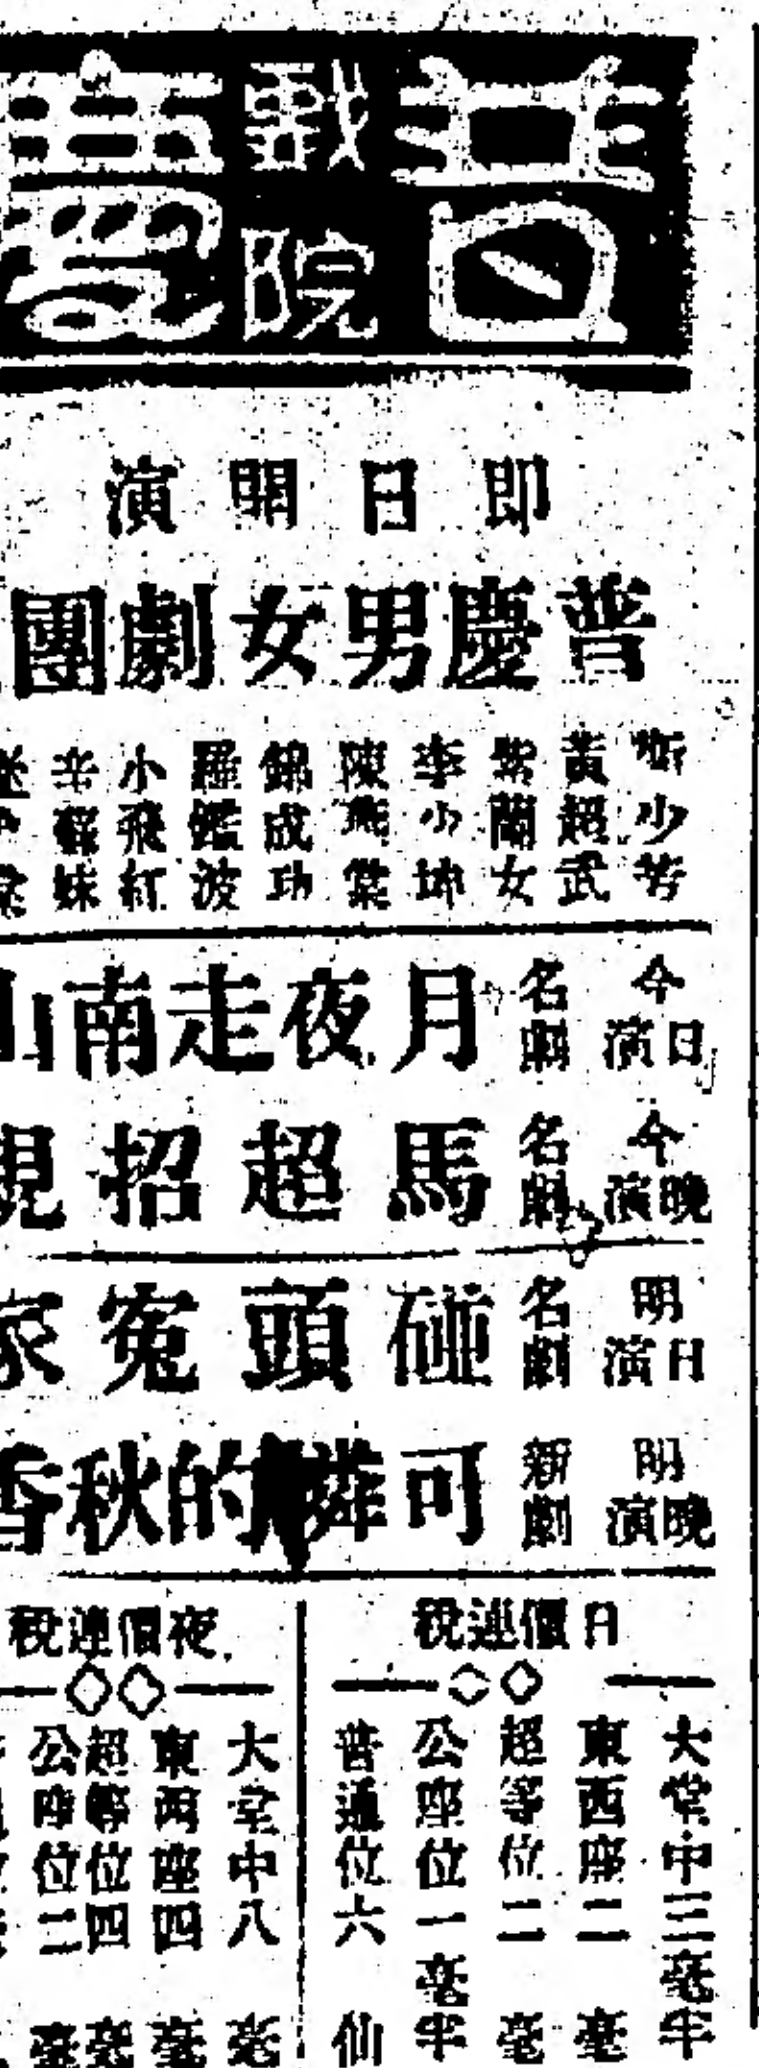 普慶
戲院
即日開演
普慶男女劇團
靳少芳
黃超武
紫蘭女
李少坤
陳燕棠
錦成功
羅鑑波
小飛紅
辛蘇妹
今日演
名劇
月夜走南山
今晚演
名劇
馬超招親
明日演
名劇
碰頭冤家
明晚演
新劇
可憐的秋香
日價連稅
大堂中三毫半
東西座二毫
超等位二毫
公座位一毫半
普通位六仙
夜價連稅
大堂中八毫
東西座四毫
超等位四毫
公座位二毫